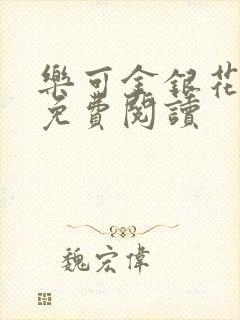 樂可金銀花
免費閱讀
魏宏偉